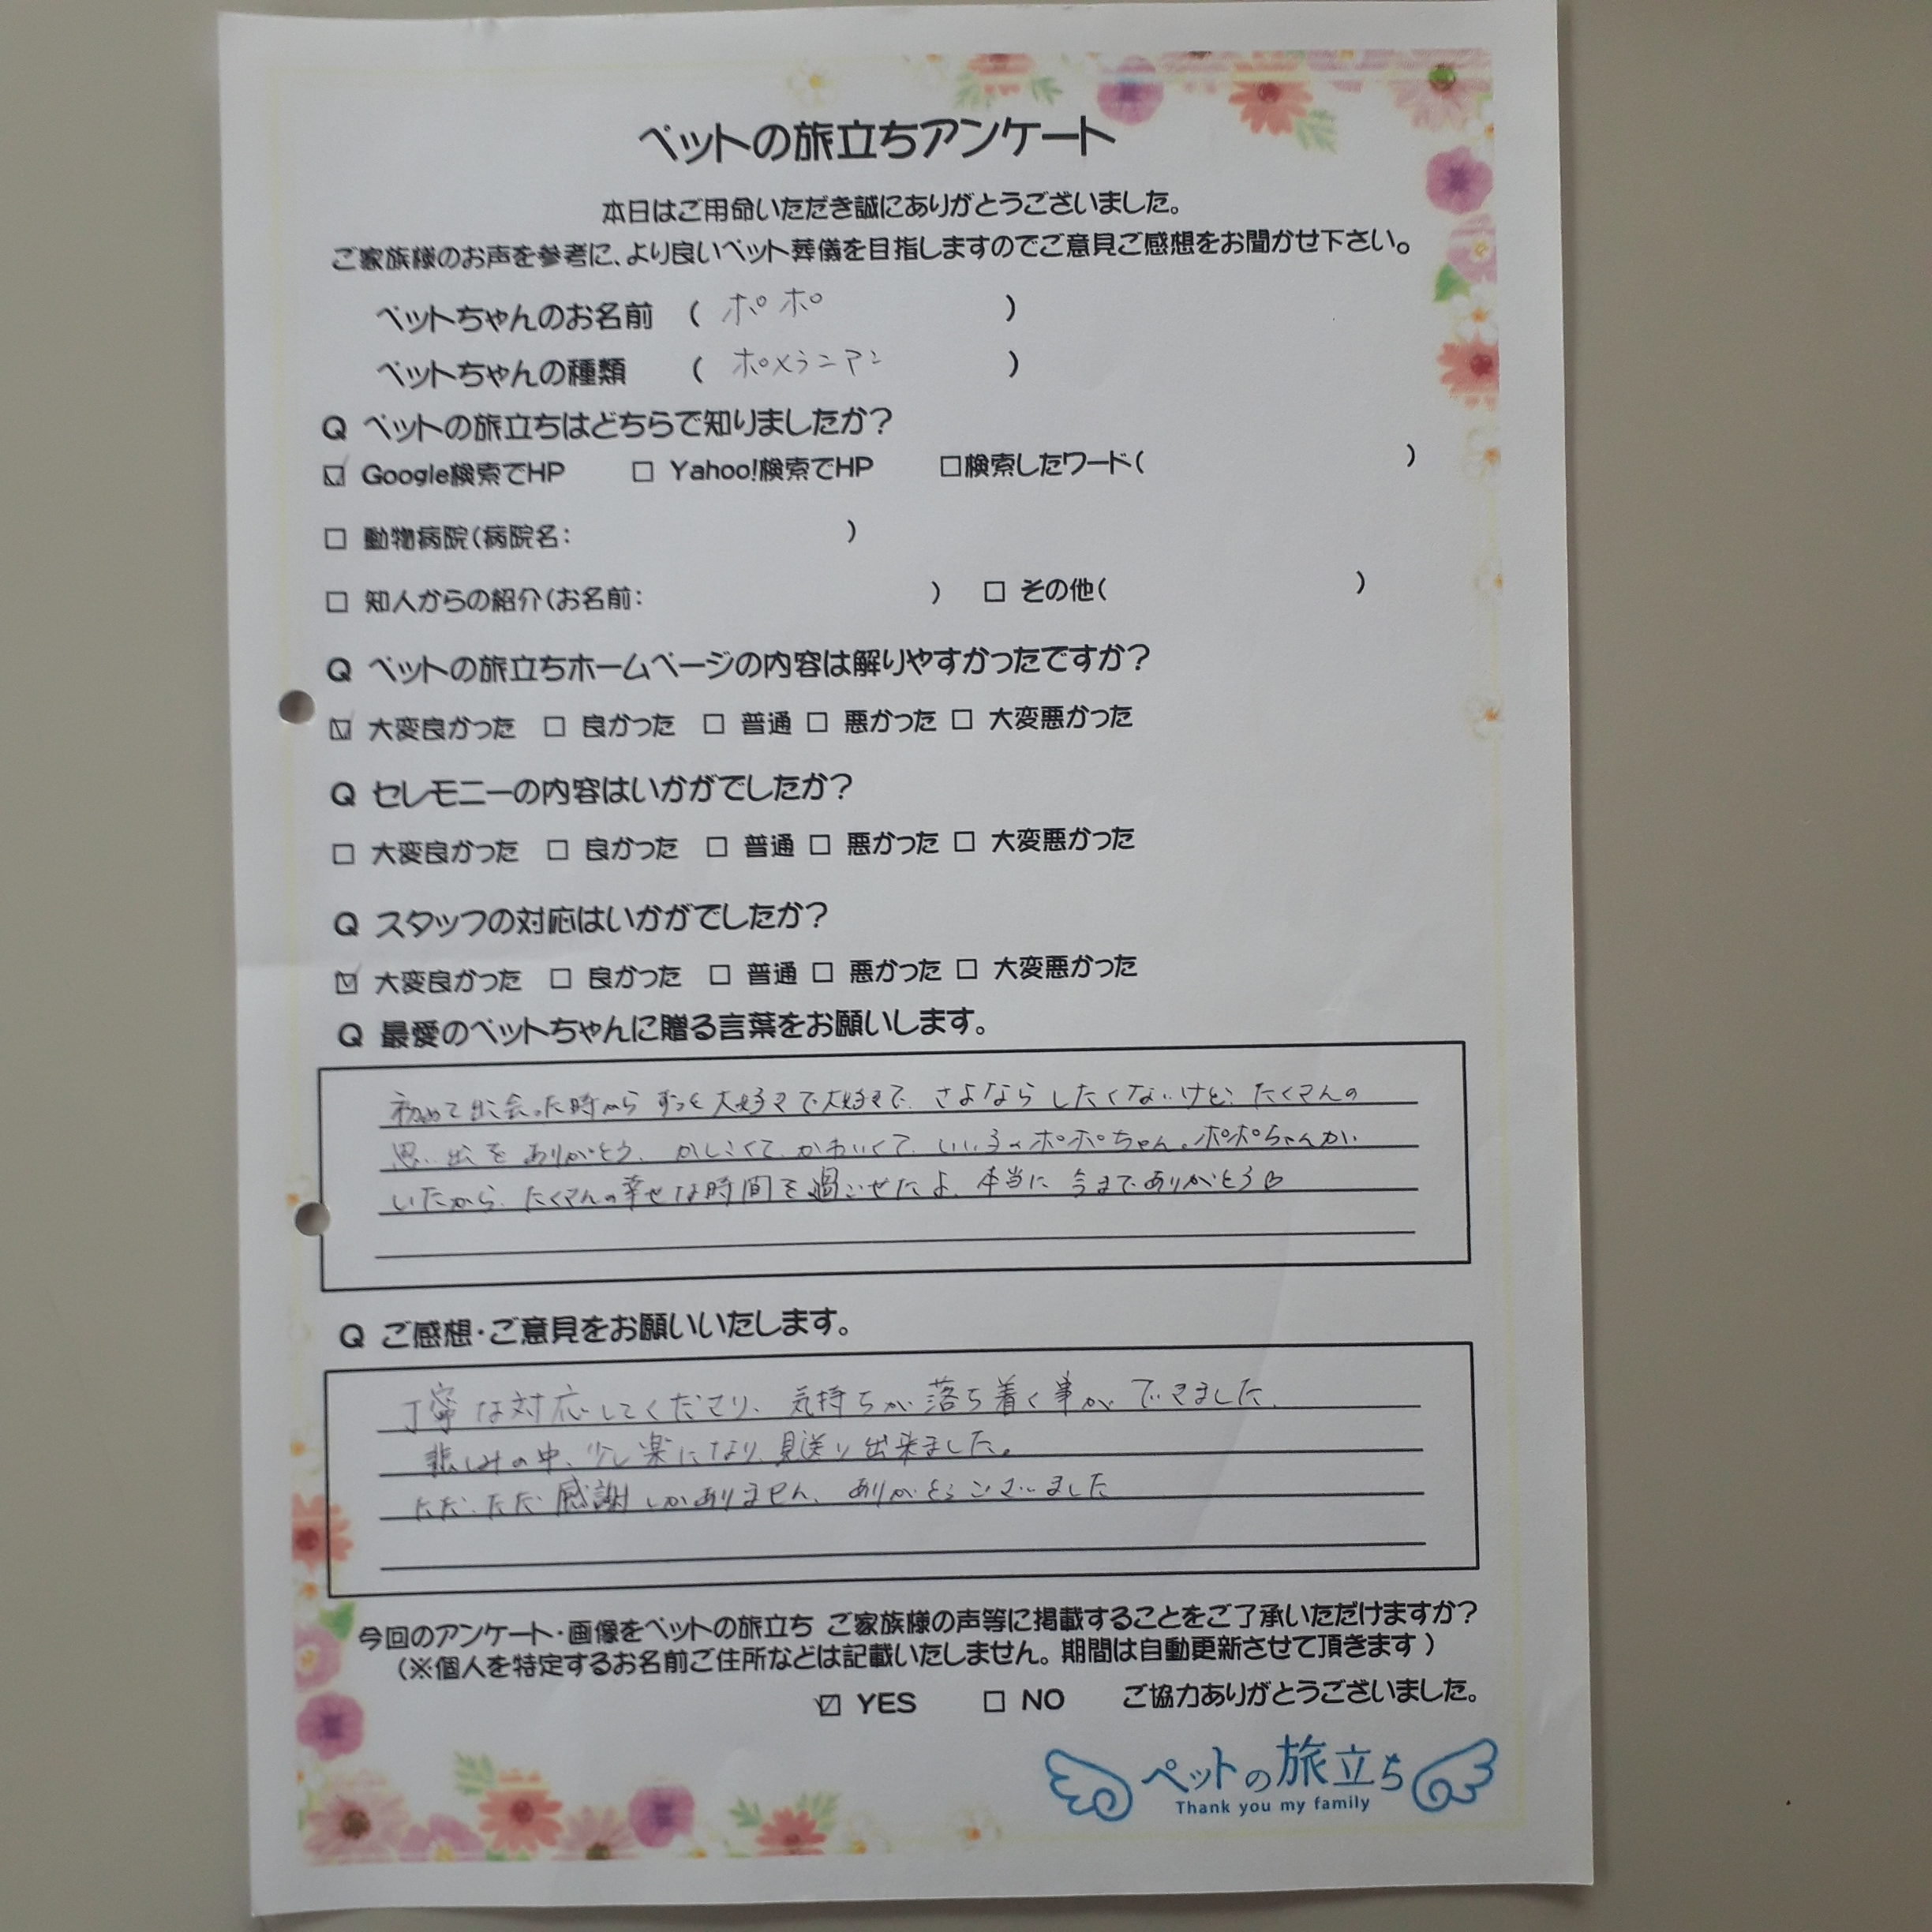 ペットの旅立ちアンケート
本日はご用命いただき誠にありがとうございました。
ご家族様のお声を参考に、より良いペット葬儀を目指しますのでご意見ご感想をお聞かせ下さい。
ペットちゃんのお名前 ( ポポ )
ペットちゃんの種類 ( ポメラニアン )
Q ペットの旅立ちはどちらで知りましたか?
☑ Google検索でHP □ Yahoo!検索でHP □検索したワード( )
□ 動物病院(病院名: )
□ 知人からの紹介(お名前: ) □ その他( )
Q ペットの旅立ちホームページの内容は解りやすかったですか?
☑ 大変良かった □ 良かった □ 普通 □ 悪かった □ 大変悪かった
Q セレモニーの内容はいかがでしたか?
□ 大変良かった □ 良かった □ 普通 □ 悪かった □ 大変悪かった
Q スタッフの対応はいかがでしたか?
☑ 大変良かった □ 良かった □ 普通 □ 悪かった □ 大変悪かった
Q 最愛のペットちゃんに贈る言葉をお願いします。
初めて出会った時から ずっと大好きで大好きで、さよなら したくないけど、たくさんの
思い出を ありがとう、かしこくて、かわいくて、いい子のポポちゃん。ポポちゃんが
いたから、たくさんの幸せな時間を過ごせたよ、本当に 今までありがとう♡
Q ご感想・ご意見をお願いいたします。
丁寧な対応してくださり、気持ちが落ち着く事ができました。
悲しみの中、少し楽になり、見送り出来ました。
ただ、ただ 感謝しかありません、ありがとうございました
今回のアンケート・画像をペットの旅立ち ご家族様の声等に掲載することをご了承いただけますか?
(※個人を特定するお名前ご住所などは記載いたしません。期間は自動更新させて頂きます)
☑ YES □ NO ご協力ありがとうございました。
ペットの旅立ち
Thank you my family